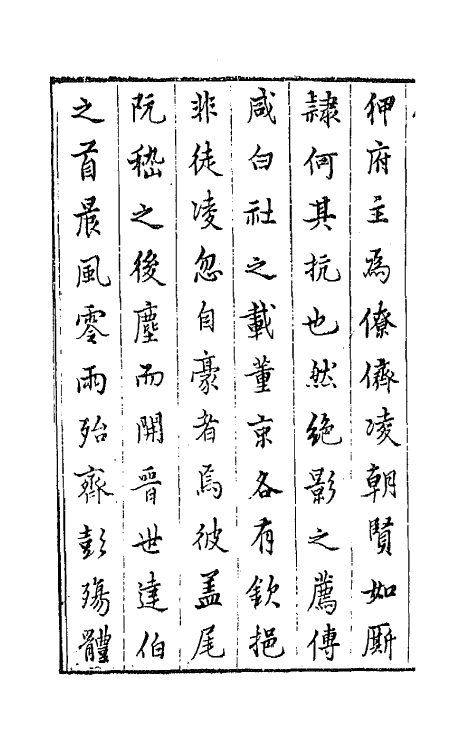 狎府主為僚儕凌朝賢如厮
隸何其抗也然絶影之薦傅
咸白社之載董京各有欽挹
非徒凌忽自豪者焉彼盖尾
阮嵇之後塵而開晉世達伯
之首晨風零雨殆齊彭殤體